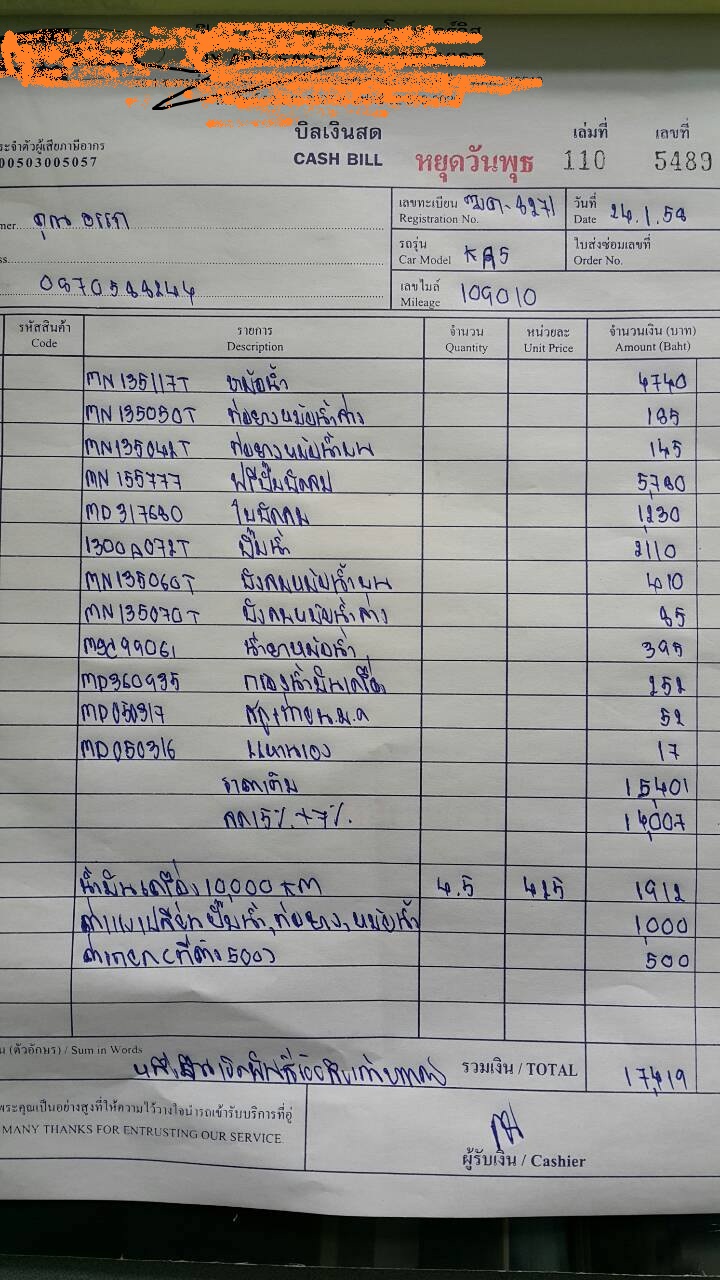 บิลเงินสด เล่มที่ เลขที่
ระจำตัวผู้เสียภาษีอากร
00503005057 CASH BILL หยุดวันพุธ 110 5489
mer คุณ เลขทะเบียน วันที่
Registration No. Date 24.1.58
รถรุ่น ใบส่งซ่อมเลขที่
ss Car Model Order No.
เลขไมล์
Mileage 109010
รหัสสินค้า รายการ จำนวน หน่วยละ จำนวนเงิน (บาท)
Code Description Quantity Unit Price Amount (Baht)
MN135117T หม้อน้ำ 4740
MN135050T ท่อยางหม้อน้ำล่าง 185
MN135042T ท่อยางหม้อน้ำบน 145
MN155777 ฟรีปั๊มพัดลม 5,780
MD317680 ใบพัดลม 1,230
1300A072T ปั๊มน้ำ 2110
MN135060T บังลมหม้อน้ำบน 410
MN135070T บังลมหม้อน้ำล่าง 85
น้ำยาหม้อน้ำ 395
MD360935 กรองน้ำมันเครื่อง 252
MD050317 52
MD050316 แหวนรอง 17
ราคาเต็ม 15,401
ลด15%+7% 14,007
น้ำมันเครื่อง 10,000 KM 4.5 425 1912
ค่าแรงเปลี่ยนปั๊มน้ำ,ท่อยาง,หม้อน้ำ 1,000
500
น (ตัวอักษร) / Sum in Words
หนึ่งหมื่นเจ็ดพันสี่ร้อยสิบเก้าบาท รวมเงิน / TOTAL 17,419
พระคุณเป็นอย่างสูงที่ให้ความไว้วางใจนำรถเข้ารับบริการที่อู่
MANY THANKS FOR ENTRUSTING OUR SERVICE
ผู้รับเงิน / Cashier